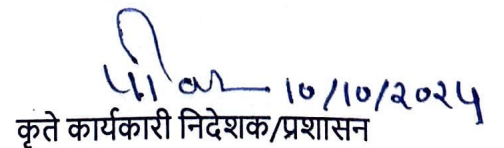 10/10/2025
कृते कार्यकारी निदेशक/प्रशासन